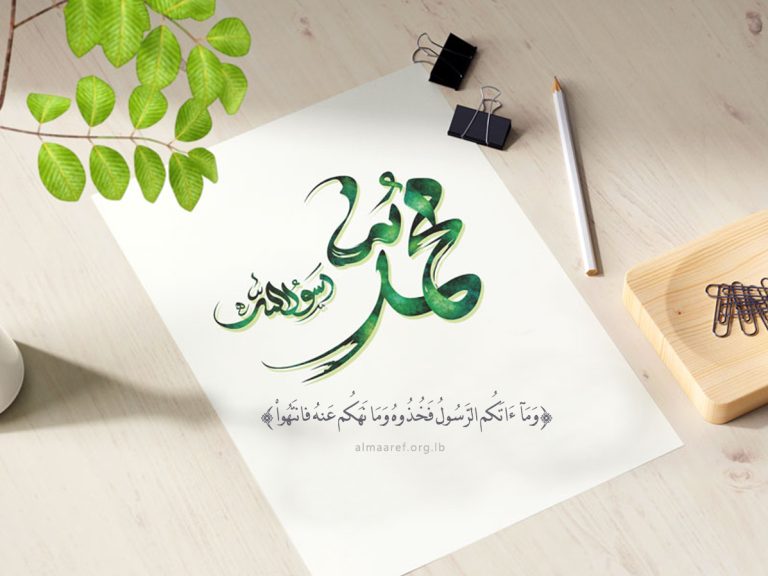 محمد
رسول الله
﴿وَمَآ ءَاتَىٰكُم الرَّسُولُ فَخُذُوهُ وَمَا نَهَىٰكُم عَنهُ فَانتَهُواْ﴾
almaaref.org.lb